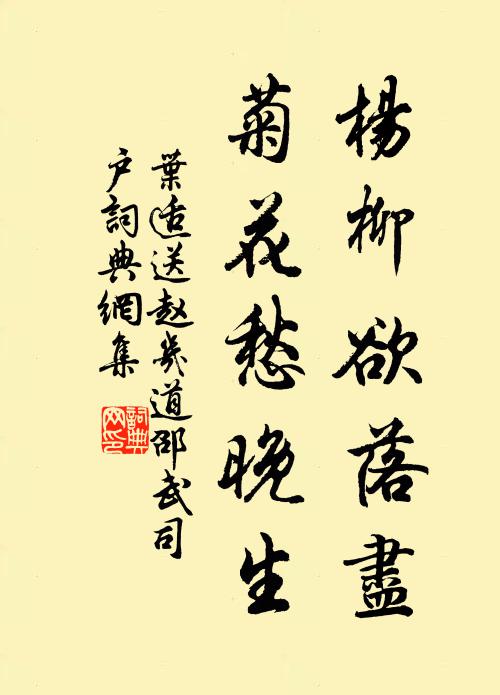 楊柳欲落盡
菊花愁晚生
葉适送赵㡬道邵武司
户詞典網集
詞典网印